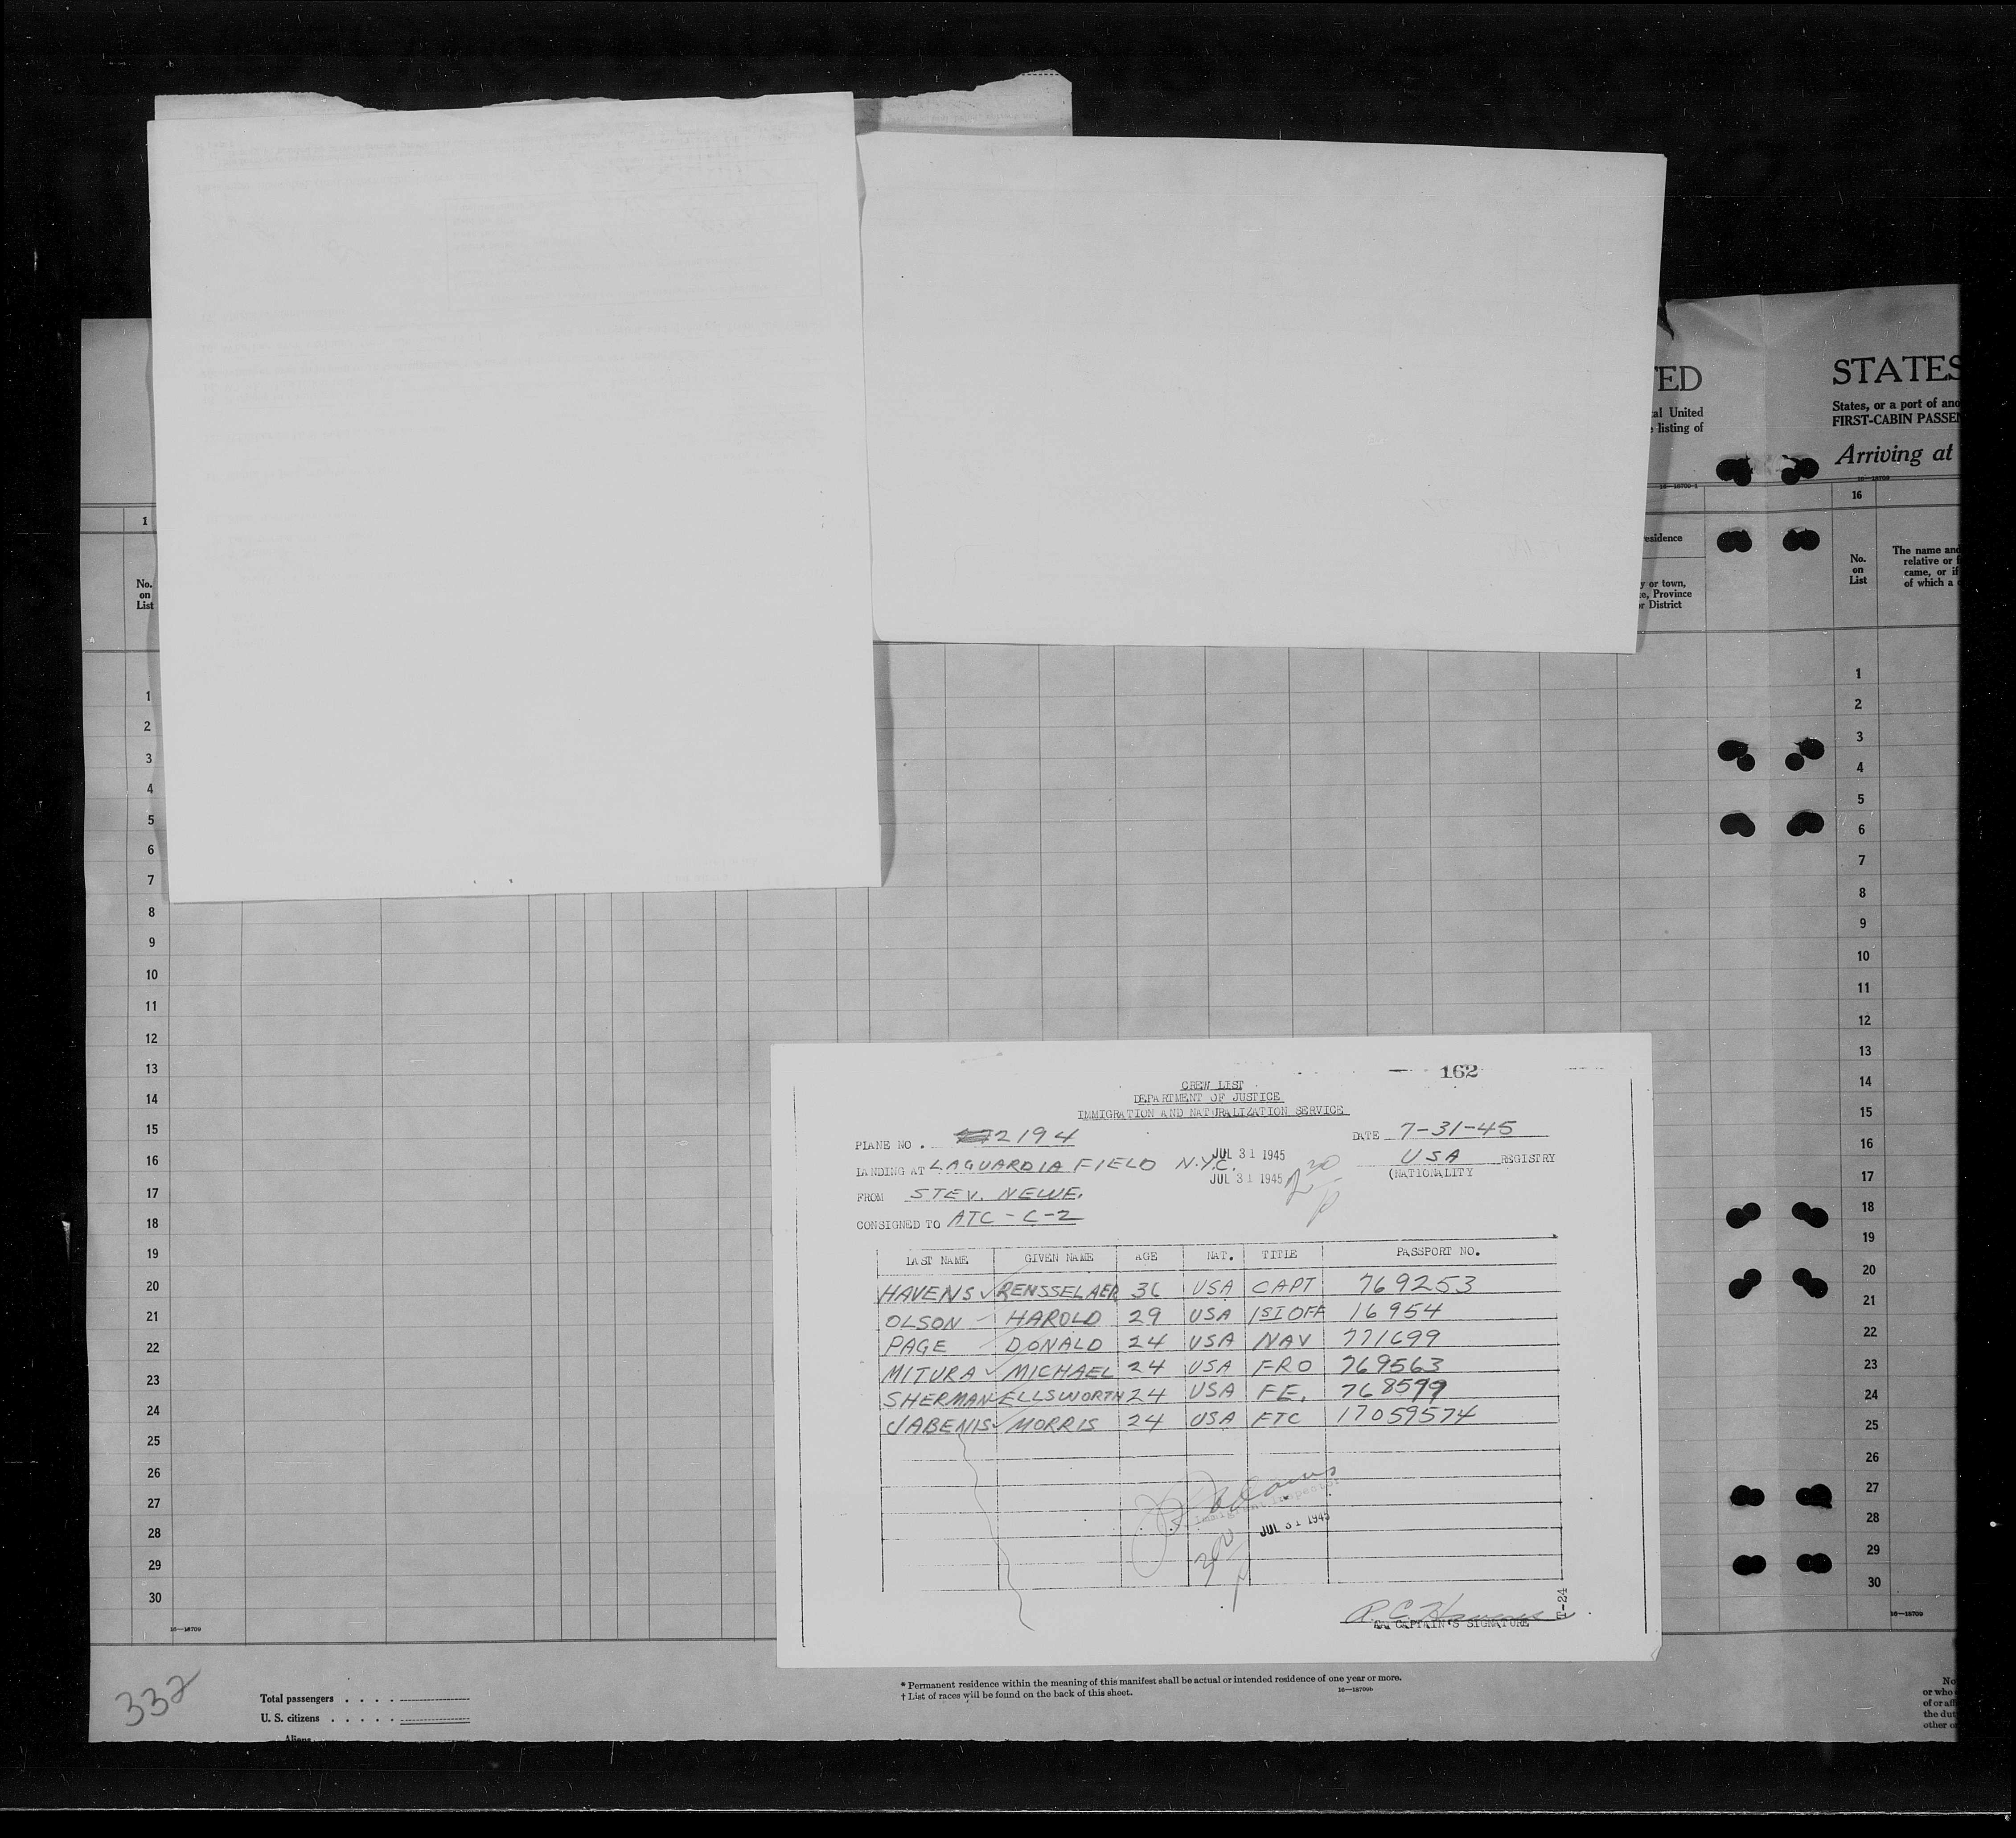 TED
al United
listing of
16—18709-1
esidence
y or town,
e, Province
or District
STATES
States, or a port of ano
FIRST-CABIN PASSEN
Arriving at
16—18709
16
No.
on
List
The name and
relative or f
came, or if
of which a c
1
2
3
4
5
6
7
8
9
10
11
12
13
14
15
16
17
18
19
20
21
22
23
24
25
26
27
28
29
30
16—18709
1
No.
on
List
A
1
2
3
4
5
6
7
8
9
10
11
12
13
14
15
16
17
18
19
20
21
22
23
24
25
26
27
28
29
30
16—18709
162
CREW LIST
DEPARTMENT OF JUSTICE
IMMIGRATION AND NATURALIZATION SERVICE
PLANE NO. 2194 DATE 7-31-45
LANDING AT LAGUARDIA FIELD N.Y.C. JUL 31 1945 USA REGISTRY
JUL 31 1945 (NATIONALITY
FROM STEV. NEWF.
CONSIGNED TO ATC-C-2
LAST NAME GIVEN NAME AGE NAT. TITLE PASSPORT NO.
HAVENS RENSSELAER 36 USA CAPT 769253
OLSON HAROLD 29 USA 1ST OFF 16954
PAGE DONALD 24 USA NAV 771699
MITURA MICHAEL 24 USA FRO 769563
SHERMAN ELLSWORTH 24 USA FE. 768599
JABENIS MORRIS 24 USA FTC 17059574
Immigrant Inspector
JUL 31 1945
R.C. Havens
CAPTAIN'S SIGNATURE
T-24
332
Total passengers . . . .
U. S. citizens . . . . .
Aliens
* Permanent residence within the meaning of this manifest shall be actual or intended residence of one year or more.
† List of races will be found on the back of this sheet.
16—18709b
No
or who
of or aff
the dut
other o